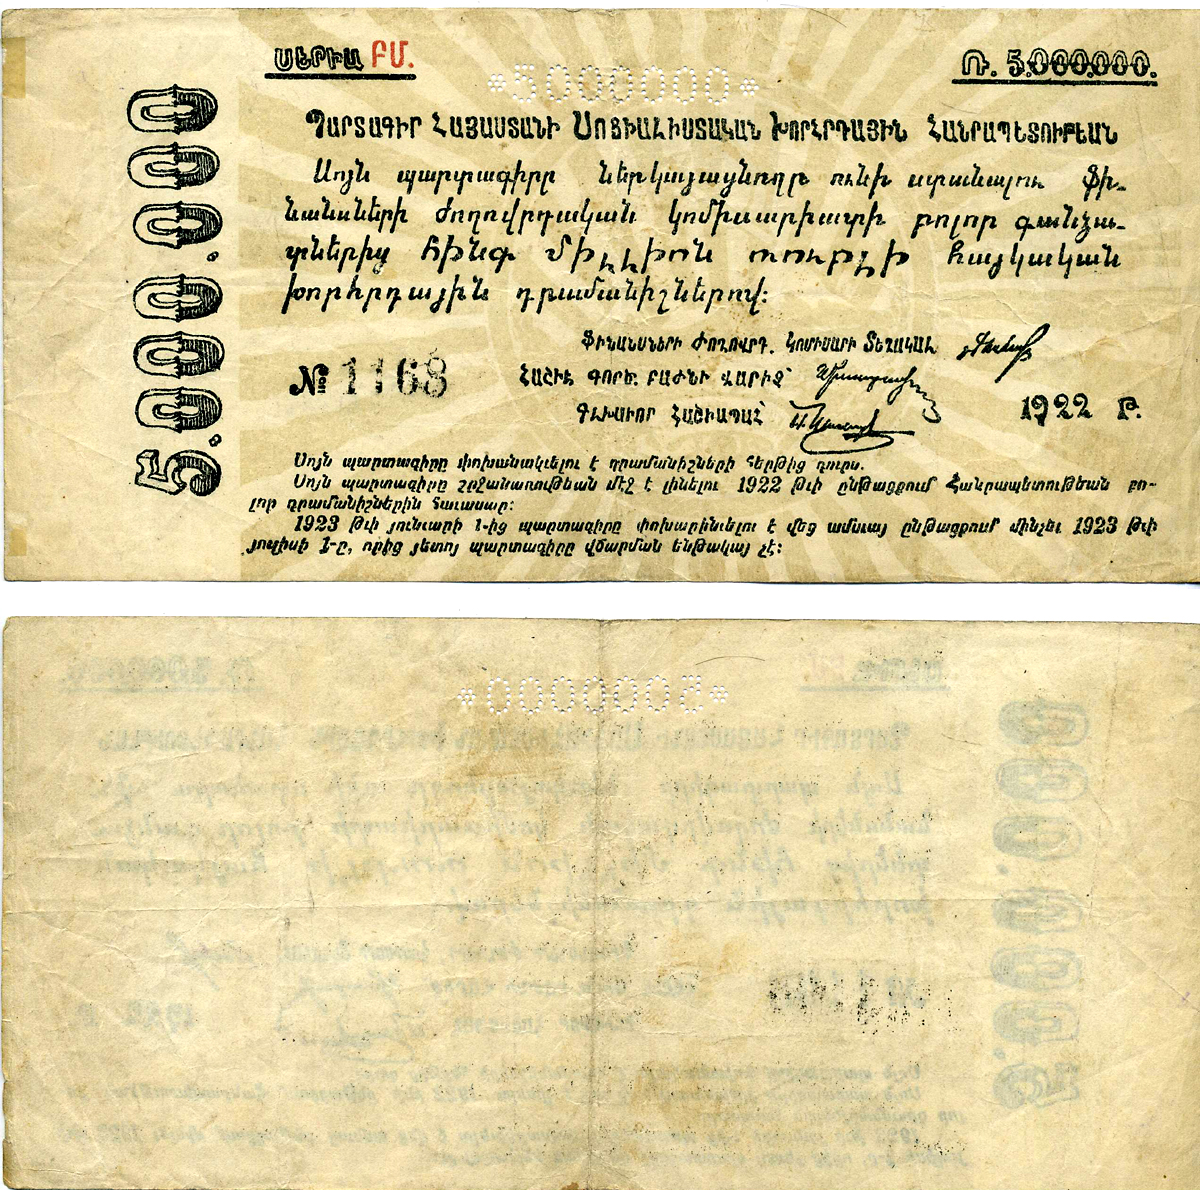 ՍԵՐԻԱ ԲՄ.
Ռ. 5.000.000.
*5000000*
5.000.000
ՊԱՐՏԱԳԻՐ ՀԱՅԱՍՏԱՆԻ ՍՈՑԻԱԼԻՍՏԱԿԱՆ ԽՈՐՀՐԴԱՅԻՆ ՀԱՆՐԱՊԵՏՈՒԹԵԱՆ
Սոյն պարտագիրը ներկայացնողը ունի ստանալու ֆի-
նանսների ժողովրդական կոմիսարիատի բոլոր գանձա-
տներից հինգ միլլիոն ռուբլի հայկական
խորհրդային դրամանիշներով:
ՖԻՆԱՆՍՆԵՐԻ ԺՈՂՈՎՐԴ. ԿՈՄԻՍԱՐԻ ՏԵՂԱԿԱԼ
№ 1168
ՀԱՇԻՒ ԳՈՐԾ. ԲԱԺՆԻ ՎԱՐԻՉ՝
ԳԼԽԱՒՈՐ ՀԱՇԻԱՊԱՀ՝
1922 Թ.
Սոյն պարտագիրը փոխանակւելու է դրամանիշների հերթից դուրս.
Սոյն պարտագիրը շրջանառութեան մէջ է լինելու 1922 թւի ընթացքում Հանրապետութեան բո-
լոր դրամանիշներին հաւասար:
1923 թւի յունւարի 1-ից պարտագիրը փոխարինւելու է վեց ամսւայ ընթացքում մինչեւ 1923 թւի
յուլիսի 1-ը, որից յետոյ պարտագիրը վճարման ենթակայ չէ: